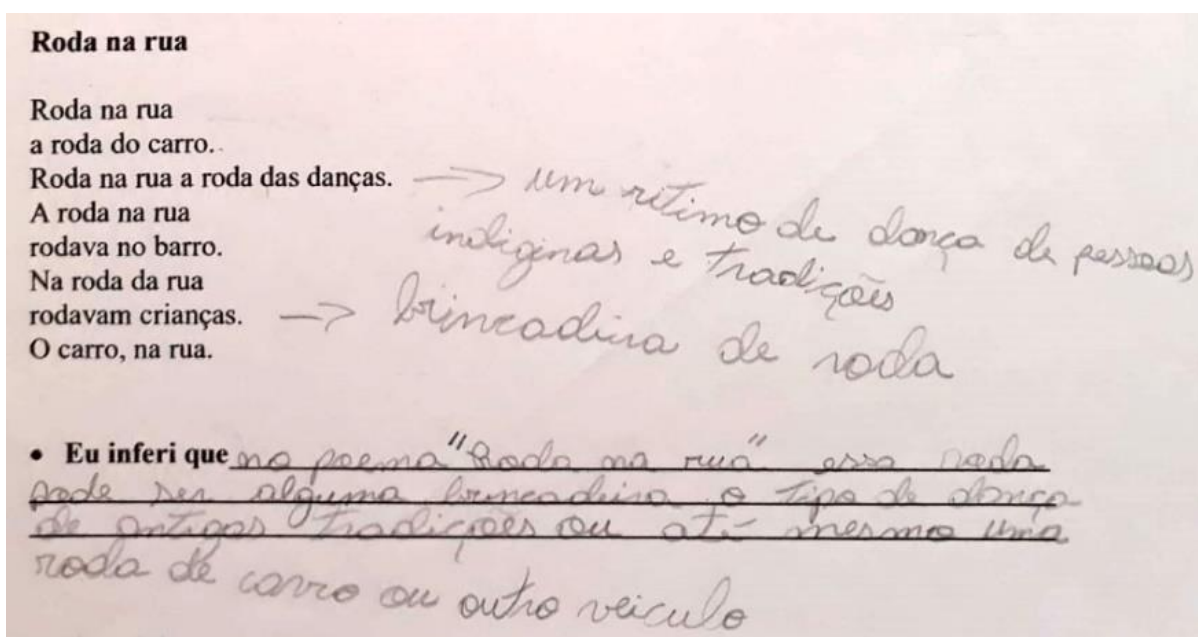 Roda na rua
Roda na rua
a roda do carro.
Roda na rua a roda das danças. —> um ritimo de dança de pessoas
indiginas e tradições
A roda na rua
rodava no barro.
Na roda da rua
rodavam crianças. —> brincadeira de roda
O carro, na rua.
• Eu inferi que no poema "Roda na rua" essa roda
pode ser alguma brincadeira o tipo de dança
de antigas tradições ou até mesmo uma
roda de carro ou outro veiculo